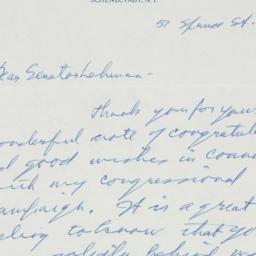 SCHENECTADY, N.Y.
57 Spruce St.
Dear Senator Lehman -
Thank you for your
wonderful note of congratula
and good wishes in conne
with my congressional
campaign. It is a great
feeling to know that yo
solidly behind